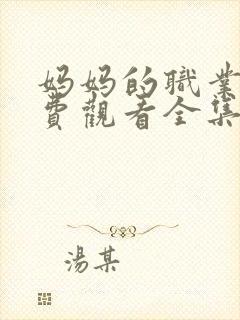 妈妈的職業
費觀看全集
湯某